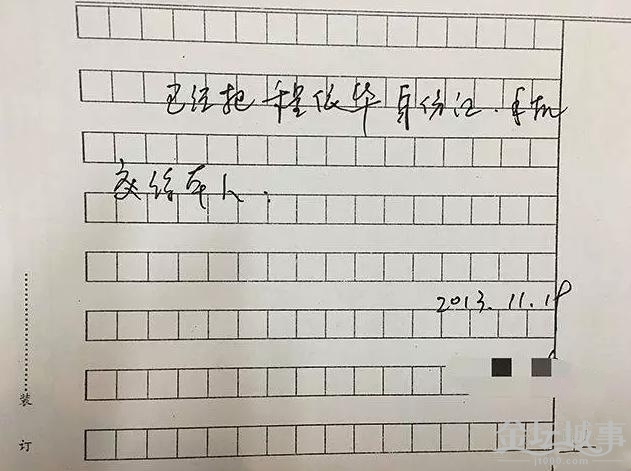 已经把程依华身份证.手机
交给本人.
2013.11.18
装
订
金坛城事
js0n0.com